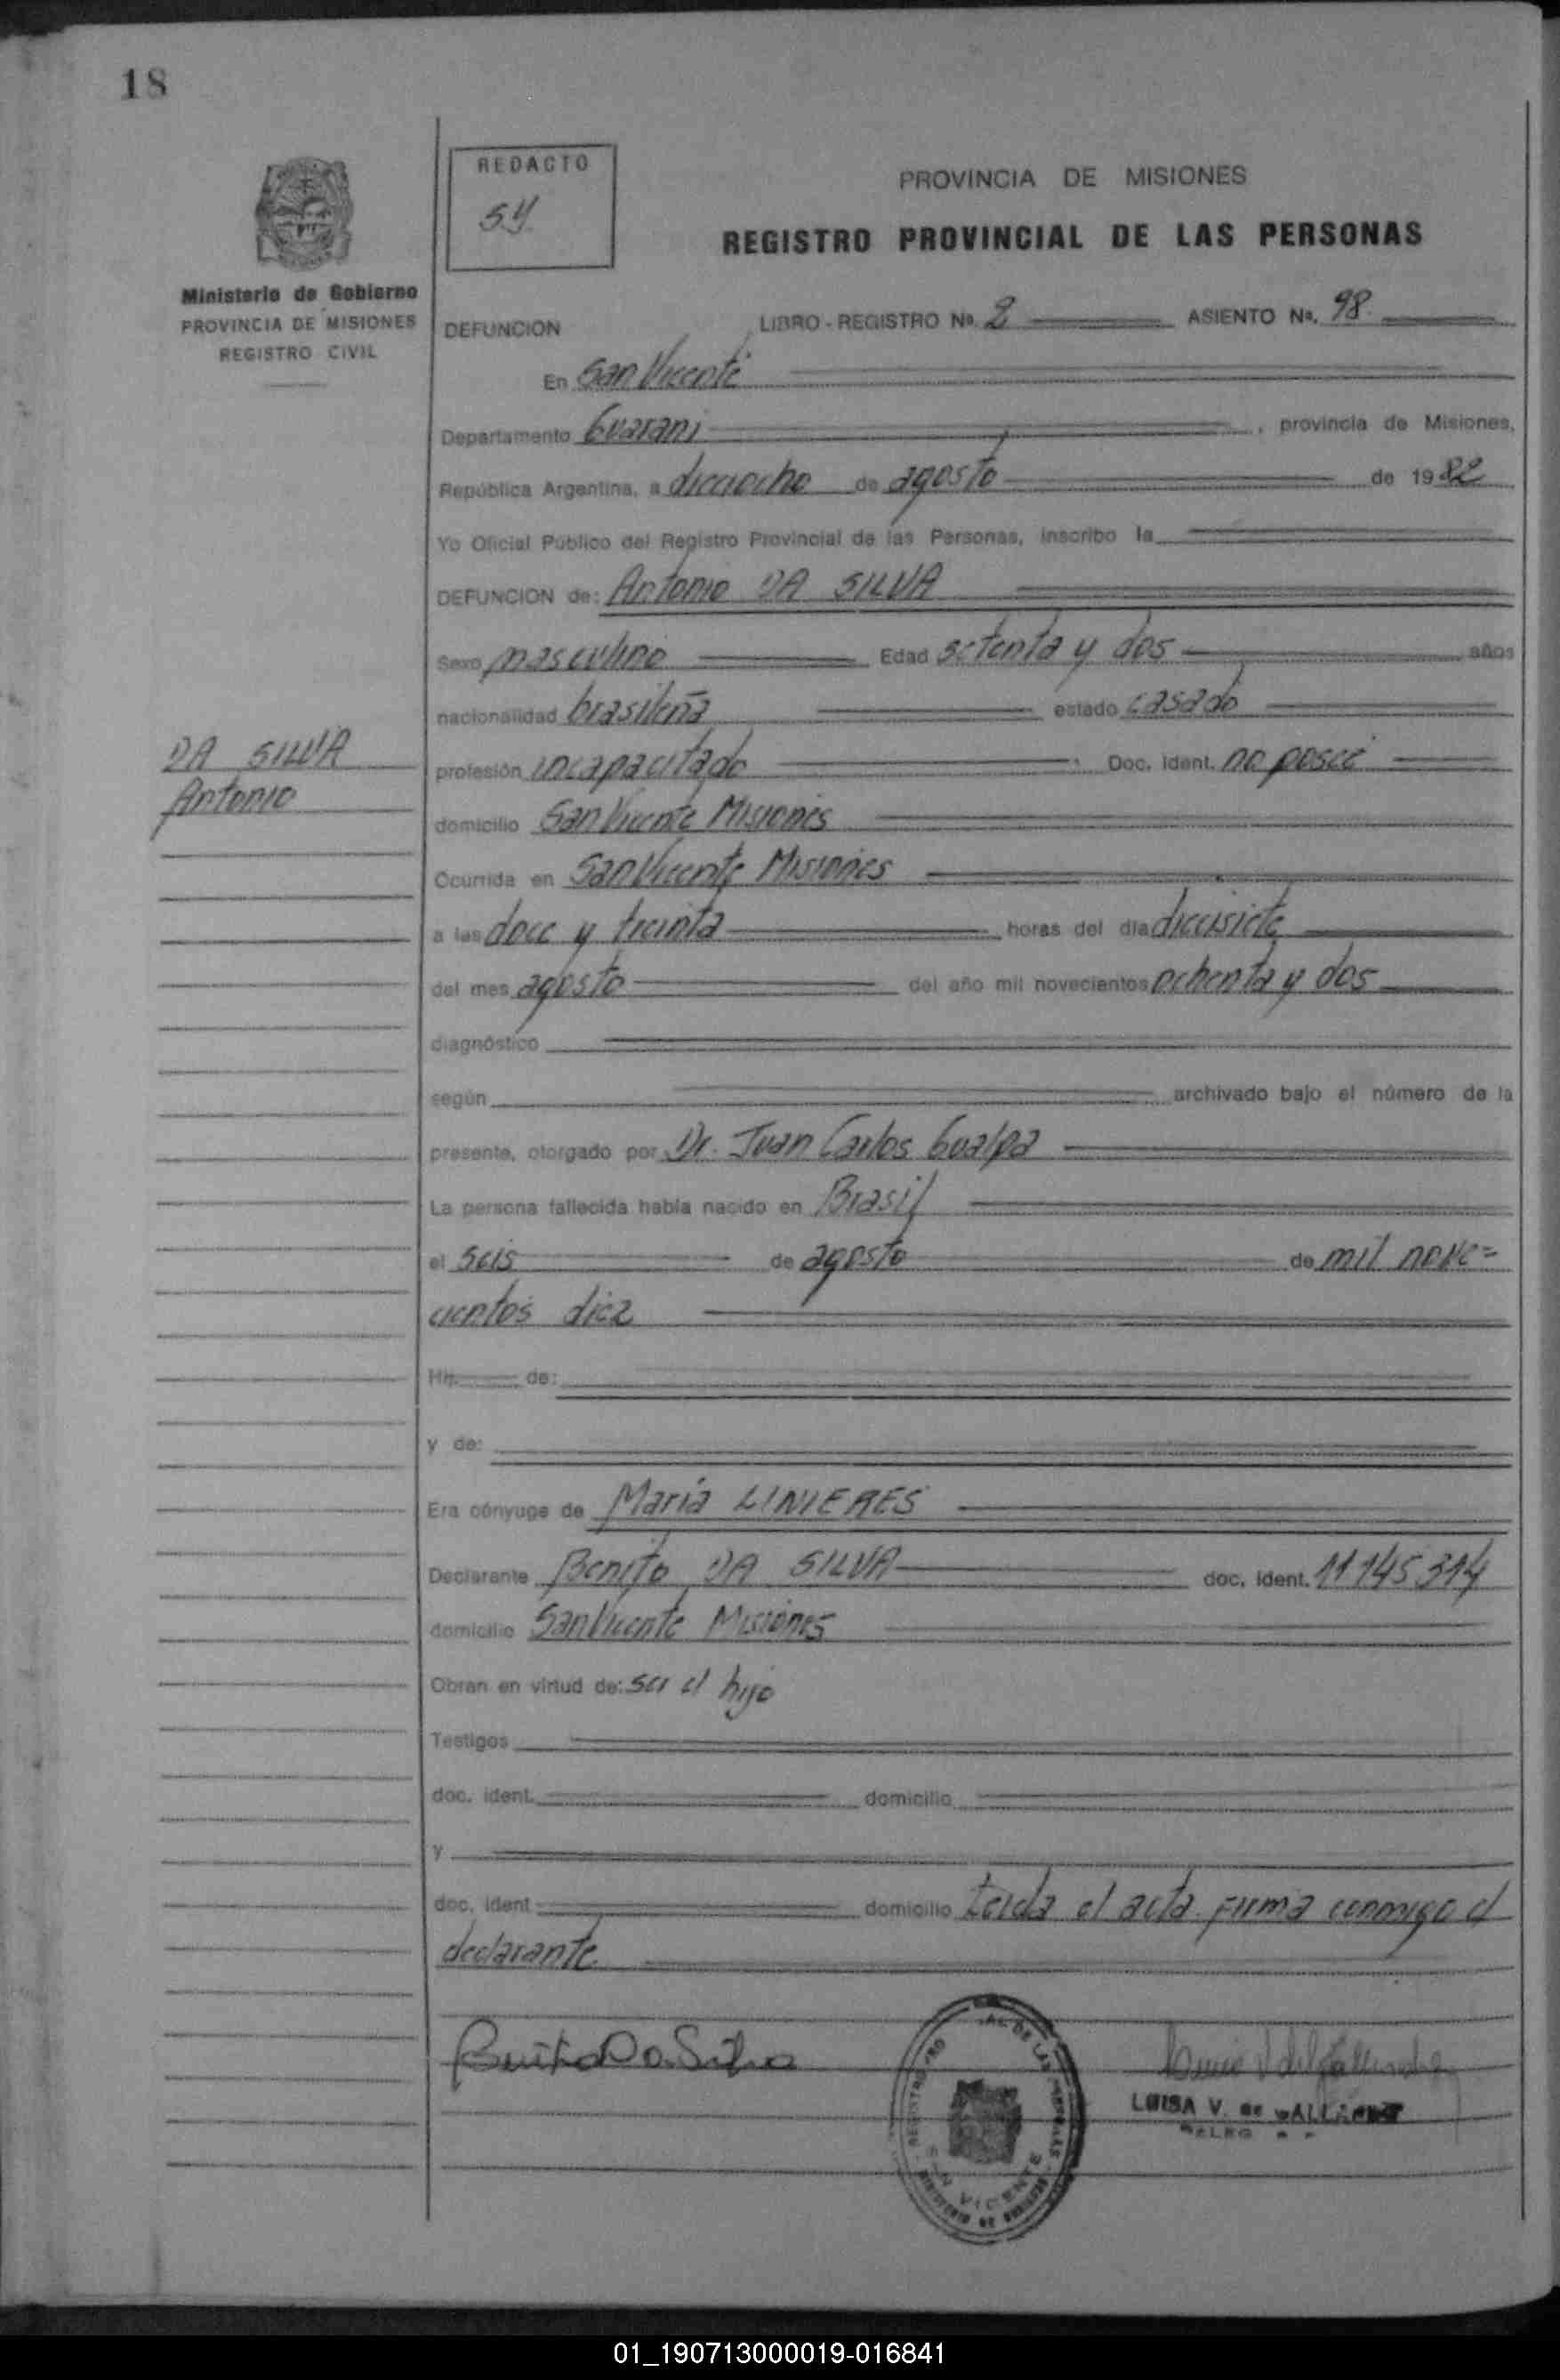 18
REDACTO
SY
PROVINCIA DE MISIONES
REGISTRO PROVINCIAL DE LAS PERSONAS
Ministerio de Gobierno
PROVINCIA DE MISIONES
REGISTRO CIVIL
DEFUNCION LIBRO - REGISTRO Nº. 2 ASIENTO Nº. 98
En San Vicente
Departamento Guarani, provincia de Misiones,
República Argentina, a dieciocho de agosto de 1982
Yo Oficial Público del Registro Provincial de las Personas, inscribo la
DEFUNCION de: Antonio DA SILVA
Sexo masculino Edad setenta y dos años
nacionalidad brasileña estado casado
DA SILVA
Antonio
profesión incapacitado. Doc. Ident. no posee
domicilio San Vicente Misiones
Ocurrida en San Vicente Misiones
a las doce y treinta horas del día diecisiete
del mes agosto del año mil novecientos ochenta y dos
diagnóstico
según archivado bajo el número de la
presente, otorgado por Dr. Juan Carlos Gualpa
La persona fallecida había nacido en Brasil
el seis de agosto de mil nove=
cientos diez
Hij de:
y de:
Era cónyuge de María LINIERES
Declarante Benito DA SILVA doc. ident. 11 145 314
domicilio San Vicente Misiones
Obran en virtud de: ser el hijo
Testigos
doc. ident. domicilio
y
doc. ident domicilio Leída el acta firma conmigo el
declarante
Benito Da Silva
SAN VICENTE
LUISA V. de
01_190713000019-016841